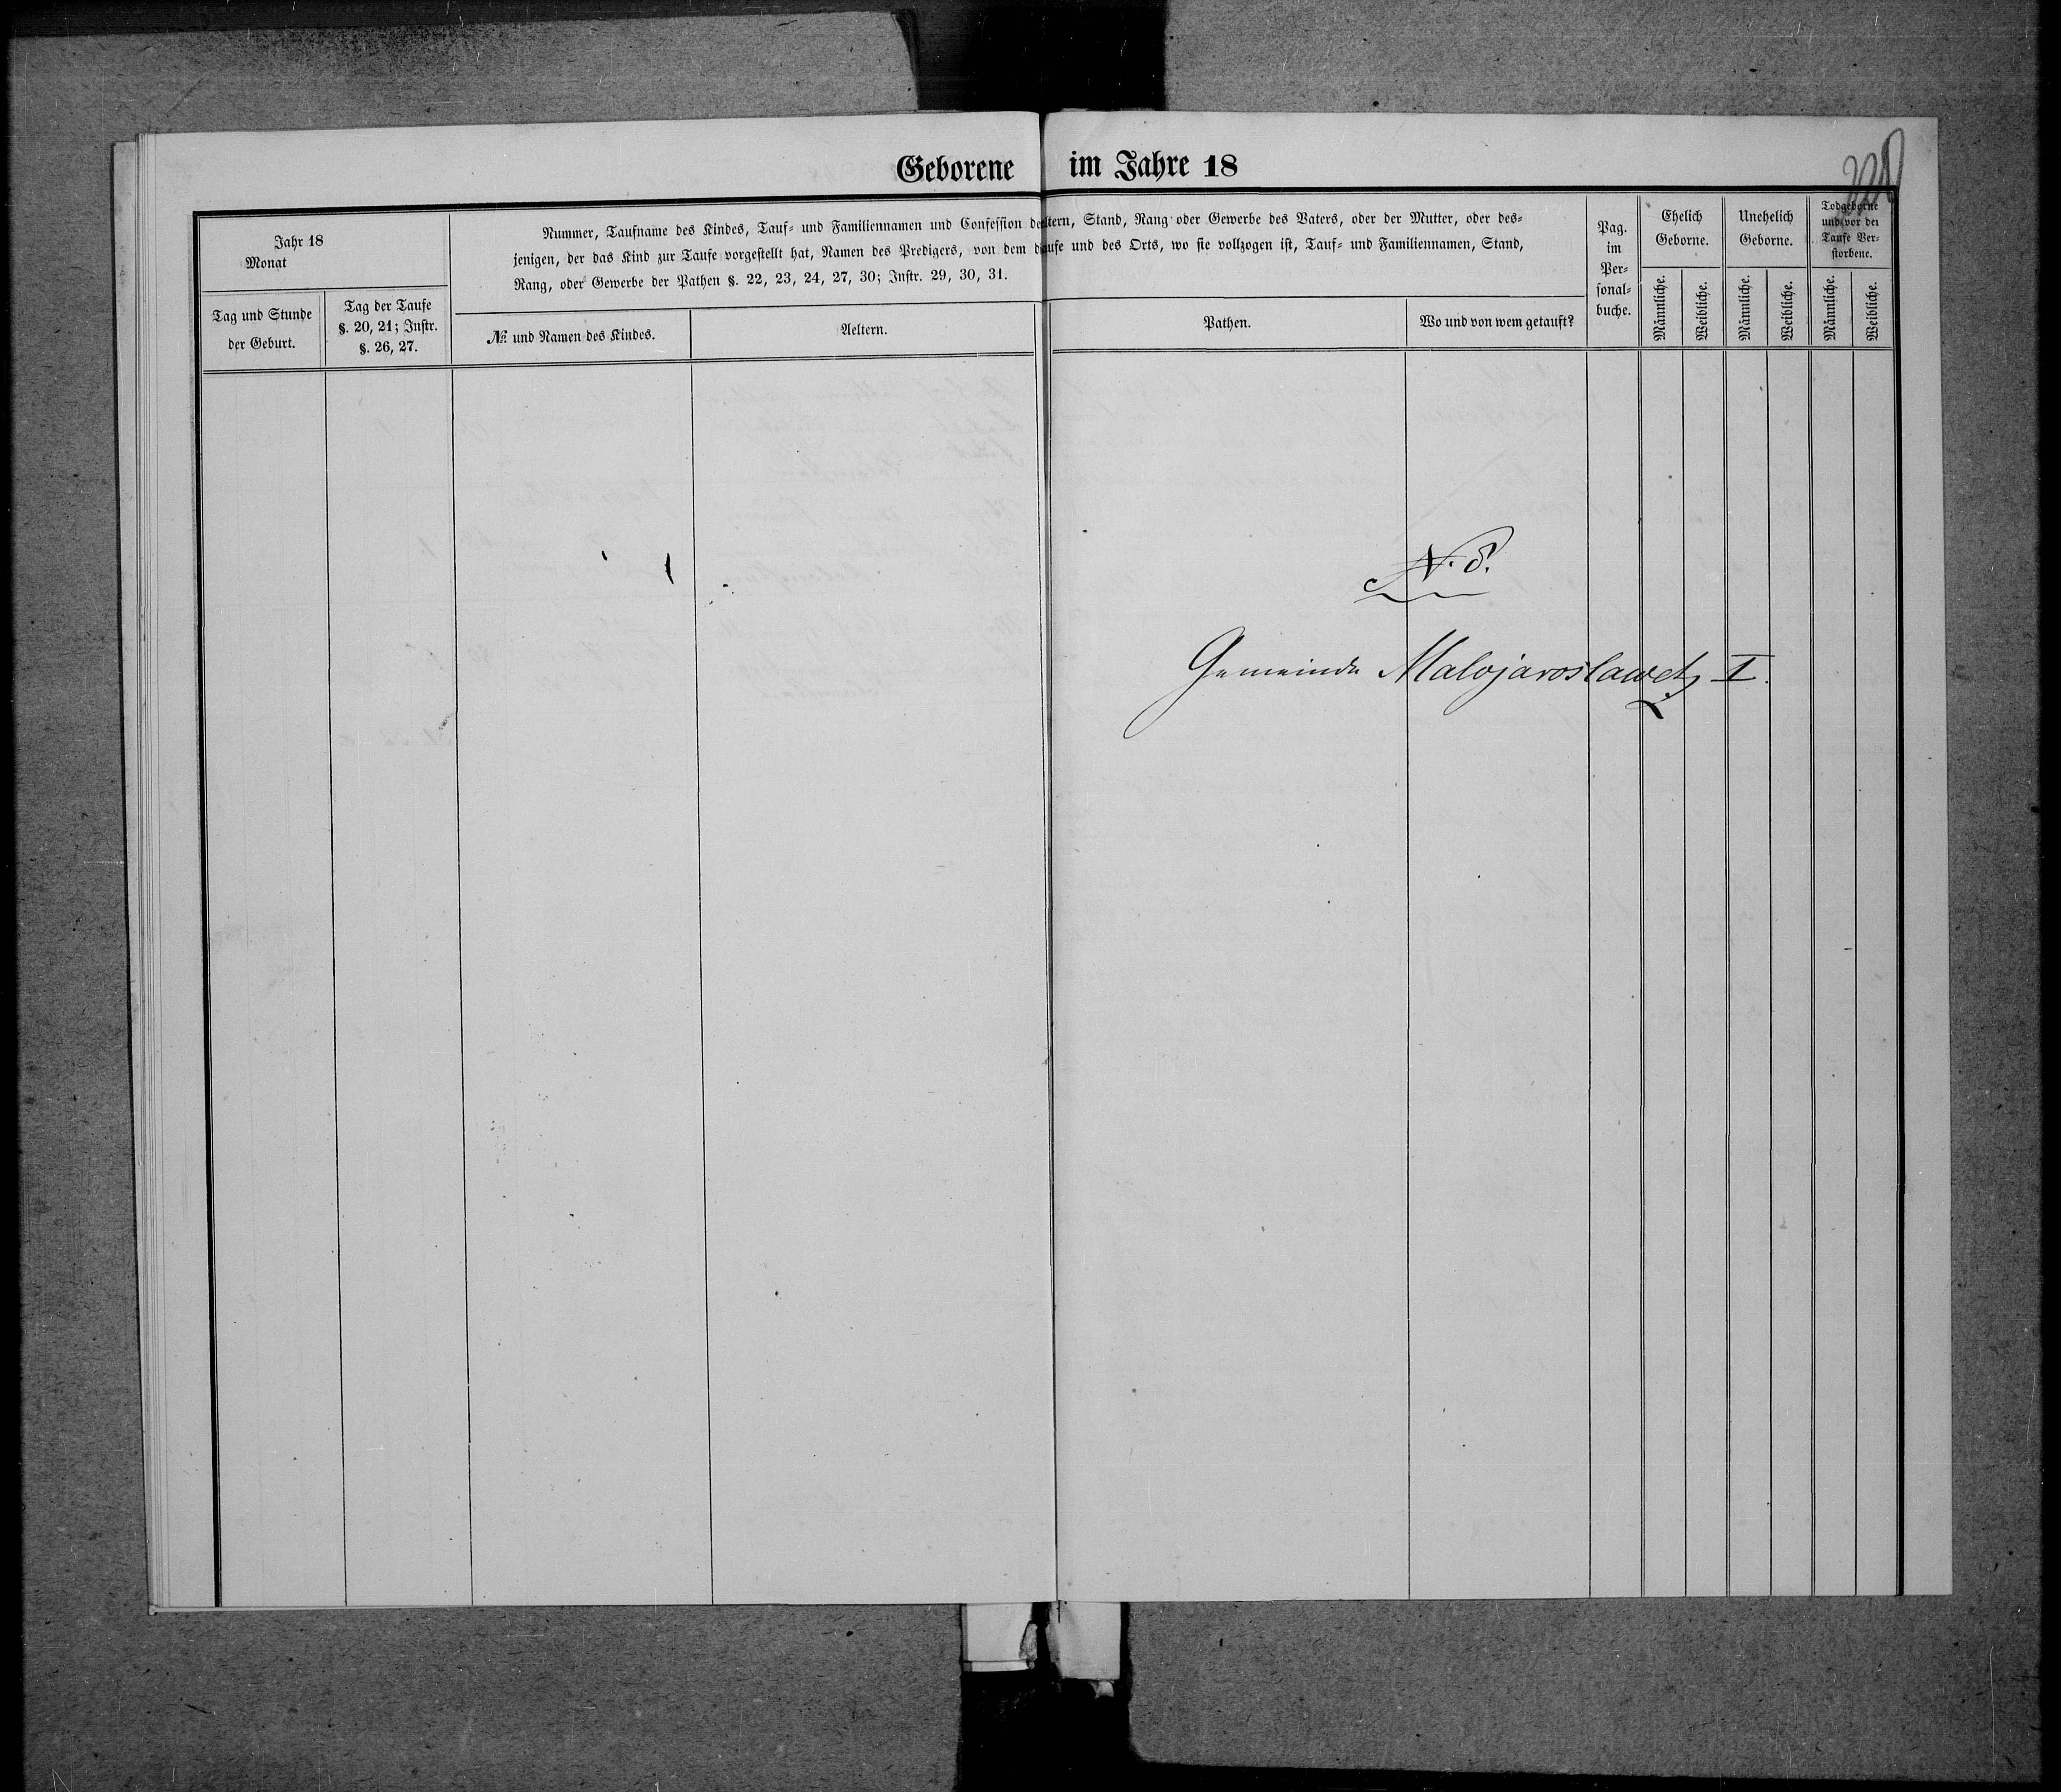 Geborene im Jahre 18
Jahr 18
Monat
Nummer, Taufname des Kindes, Tauf- und Familiennamen und Confession der Aeltern, Stand, Rang oder Gewerbe des Vaters, oder der Mutter, oder des-
jenigen, der das Kind zur Taufe vorgestellt hat, Namen des Predigers, von dem die Taufe und des Orts, wo sie vollzogen ist, Tauf- und Familiennamen, Stand,
Rang, oder Gewerbe der Pathen §. 22, 23, 24, 27, 30; Instr. 29, 30, 31.
Pag.
im
Per-
sonal-
buche.
Ehelich
Geborne.
Unehelich
Geborne.
Todgeborne
und vor der
Taufe Ver-
storbene.
Tag und Stunde
der Geburt.
Tag der Taufe
§. 20, 21; Instr.
§. 26, 27.
№ und Namen des Kindes.
Aeltern.
Pathen.
Wo und von wem getauft?
Männliche.
Weibliche.
Männliche.
Weibliche.
Männliche.
Weibliche.
N. 8.
Gemeinde Malojaroslawetz I.